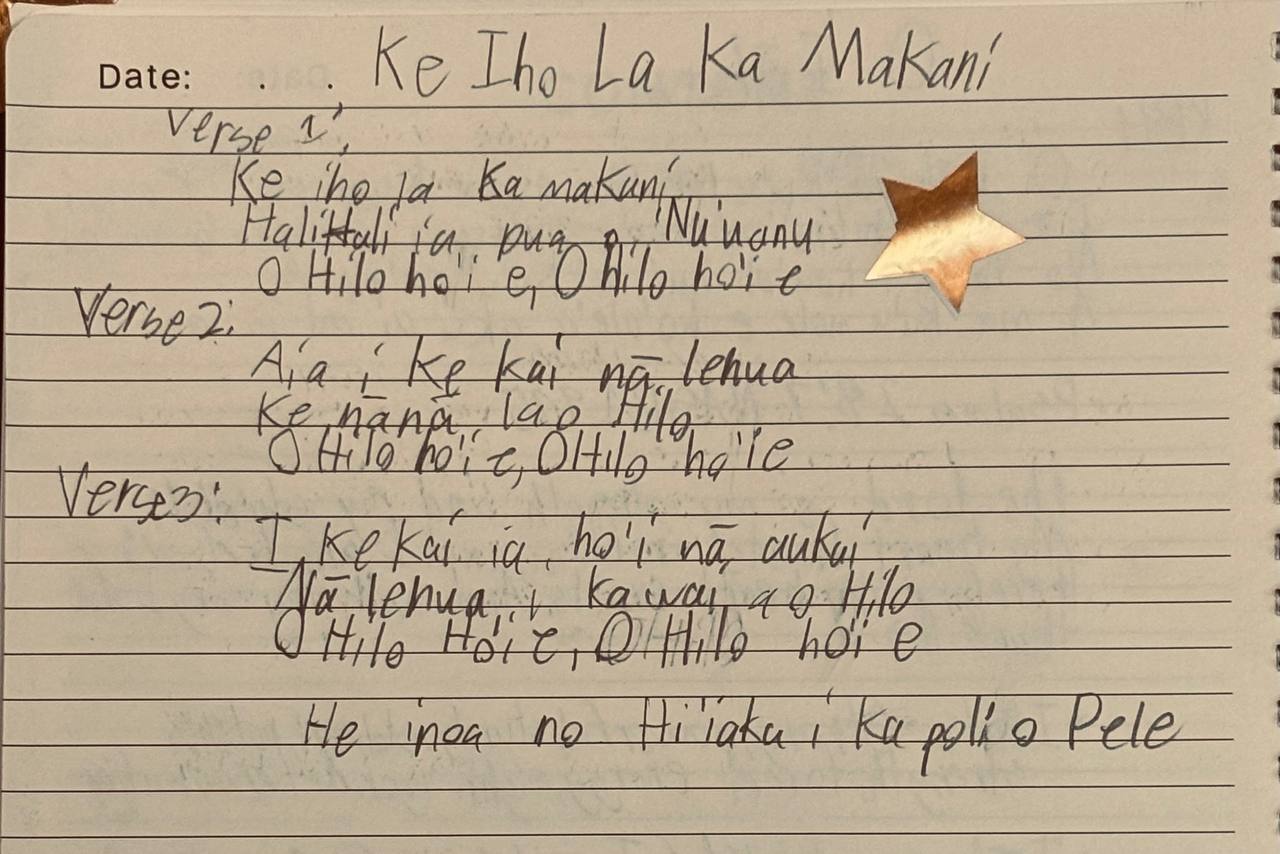 Date: . . Ke Iho La Ka Makani
Verse 1:
Ke iho la ka makani
HaliHali ia pua o Nu'uanu
O Hilo ho'i e, O hilo ho'i e
Verse 2:
Aia i ke kai nā lehua
Ke nānā la o Hilo
O Hilo ho'i e, O Hilo ho'i e
Verse 3:
I ke kai ia ho'i nā aukai
Nā lehua i ka wai a o Hilo
O Hilo Ho'i e, O Hilo ho'i e
He inoa no Hi'iaka i ka poli o Pele